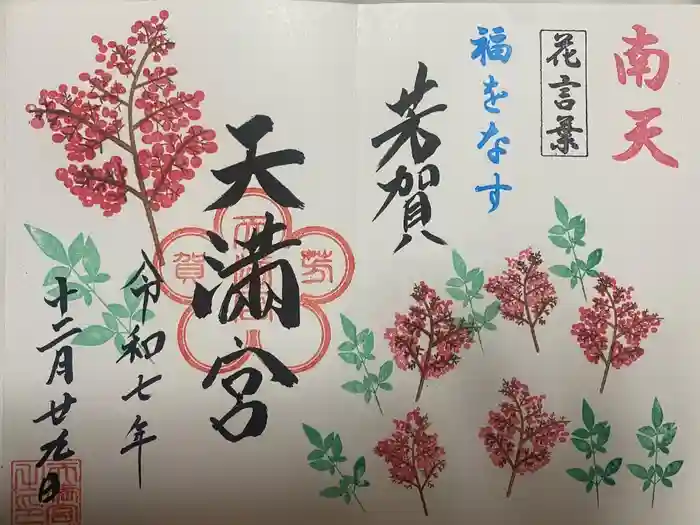 南天
花言葉
福をなす
芳賀
天満宮
令和七年
十二月廿九日
芳
賀